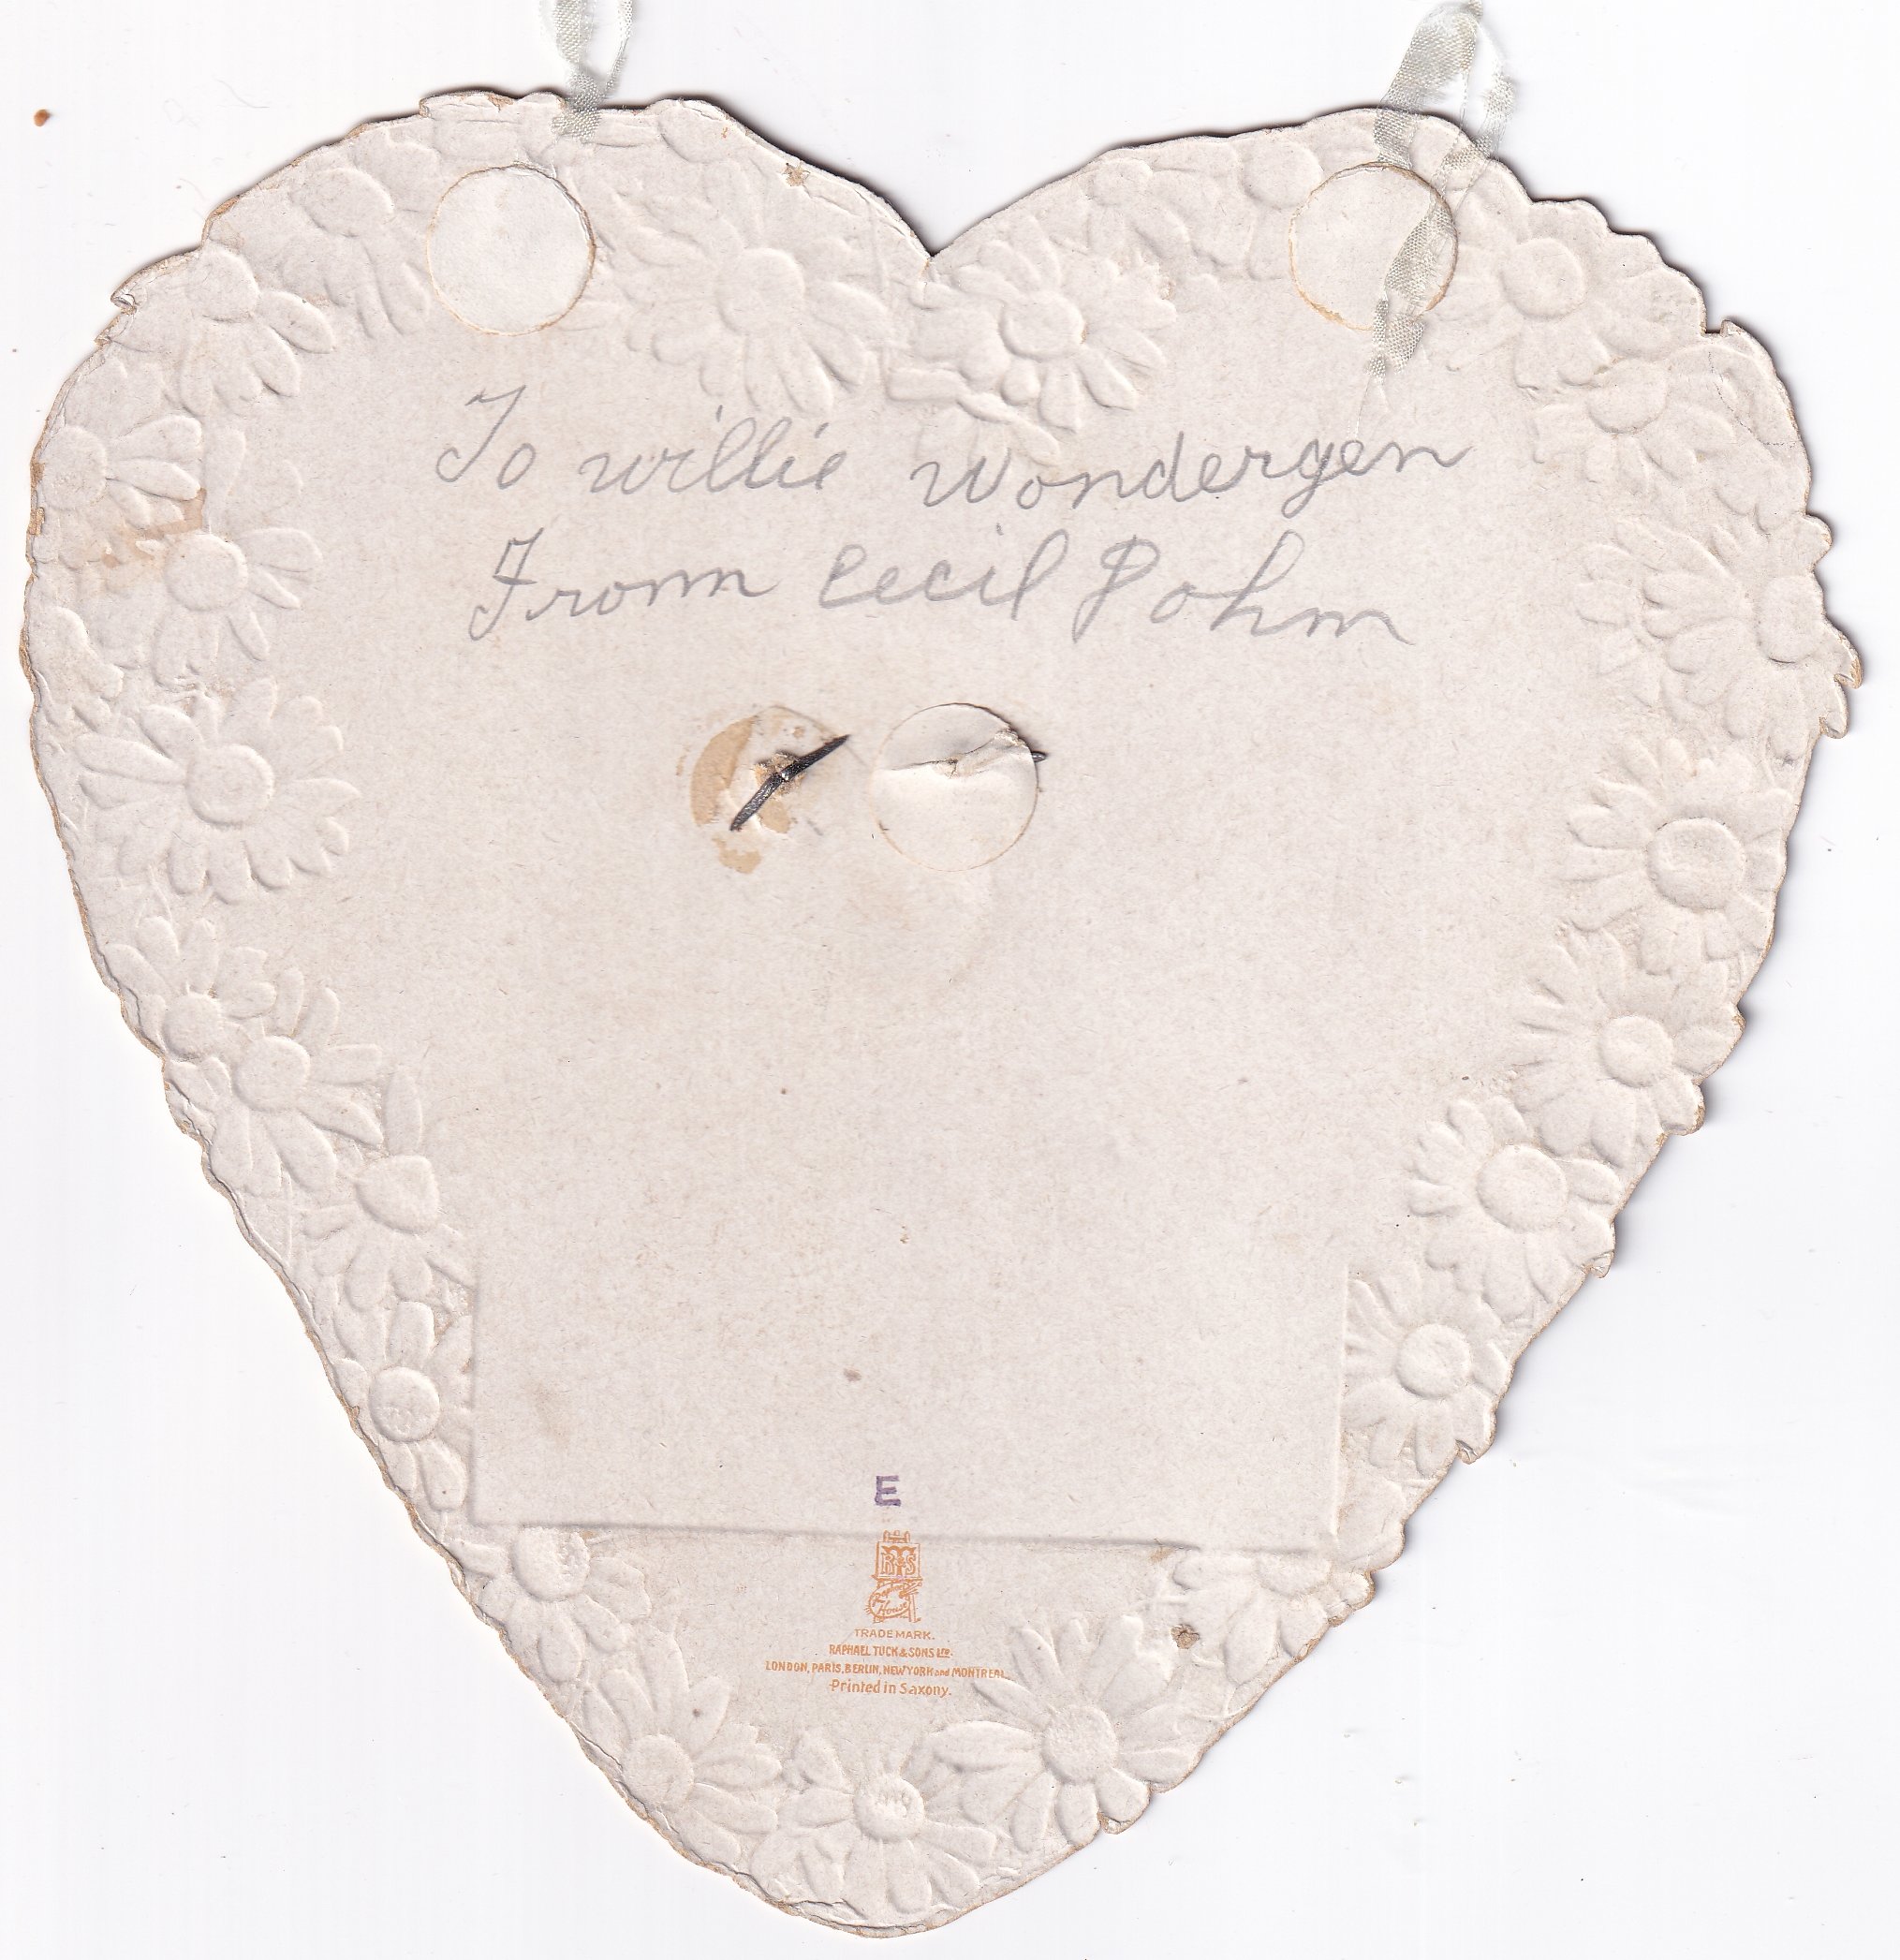 To willie wondergen
From Cecil Pohm
E
RT&S
Raphael
House
TRADEMARK.
RAPHAEL TUCK & SONS LTD.
LONDON, PARIS, BERLIN, NEW YORK and MONTREAL.
Printed in Saxony.